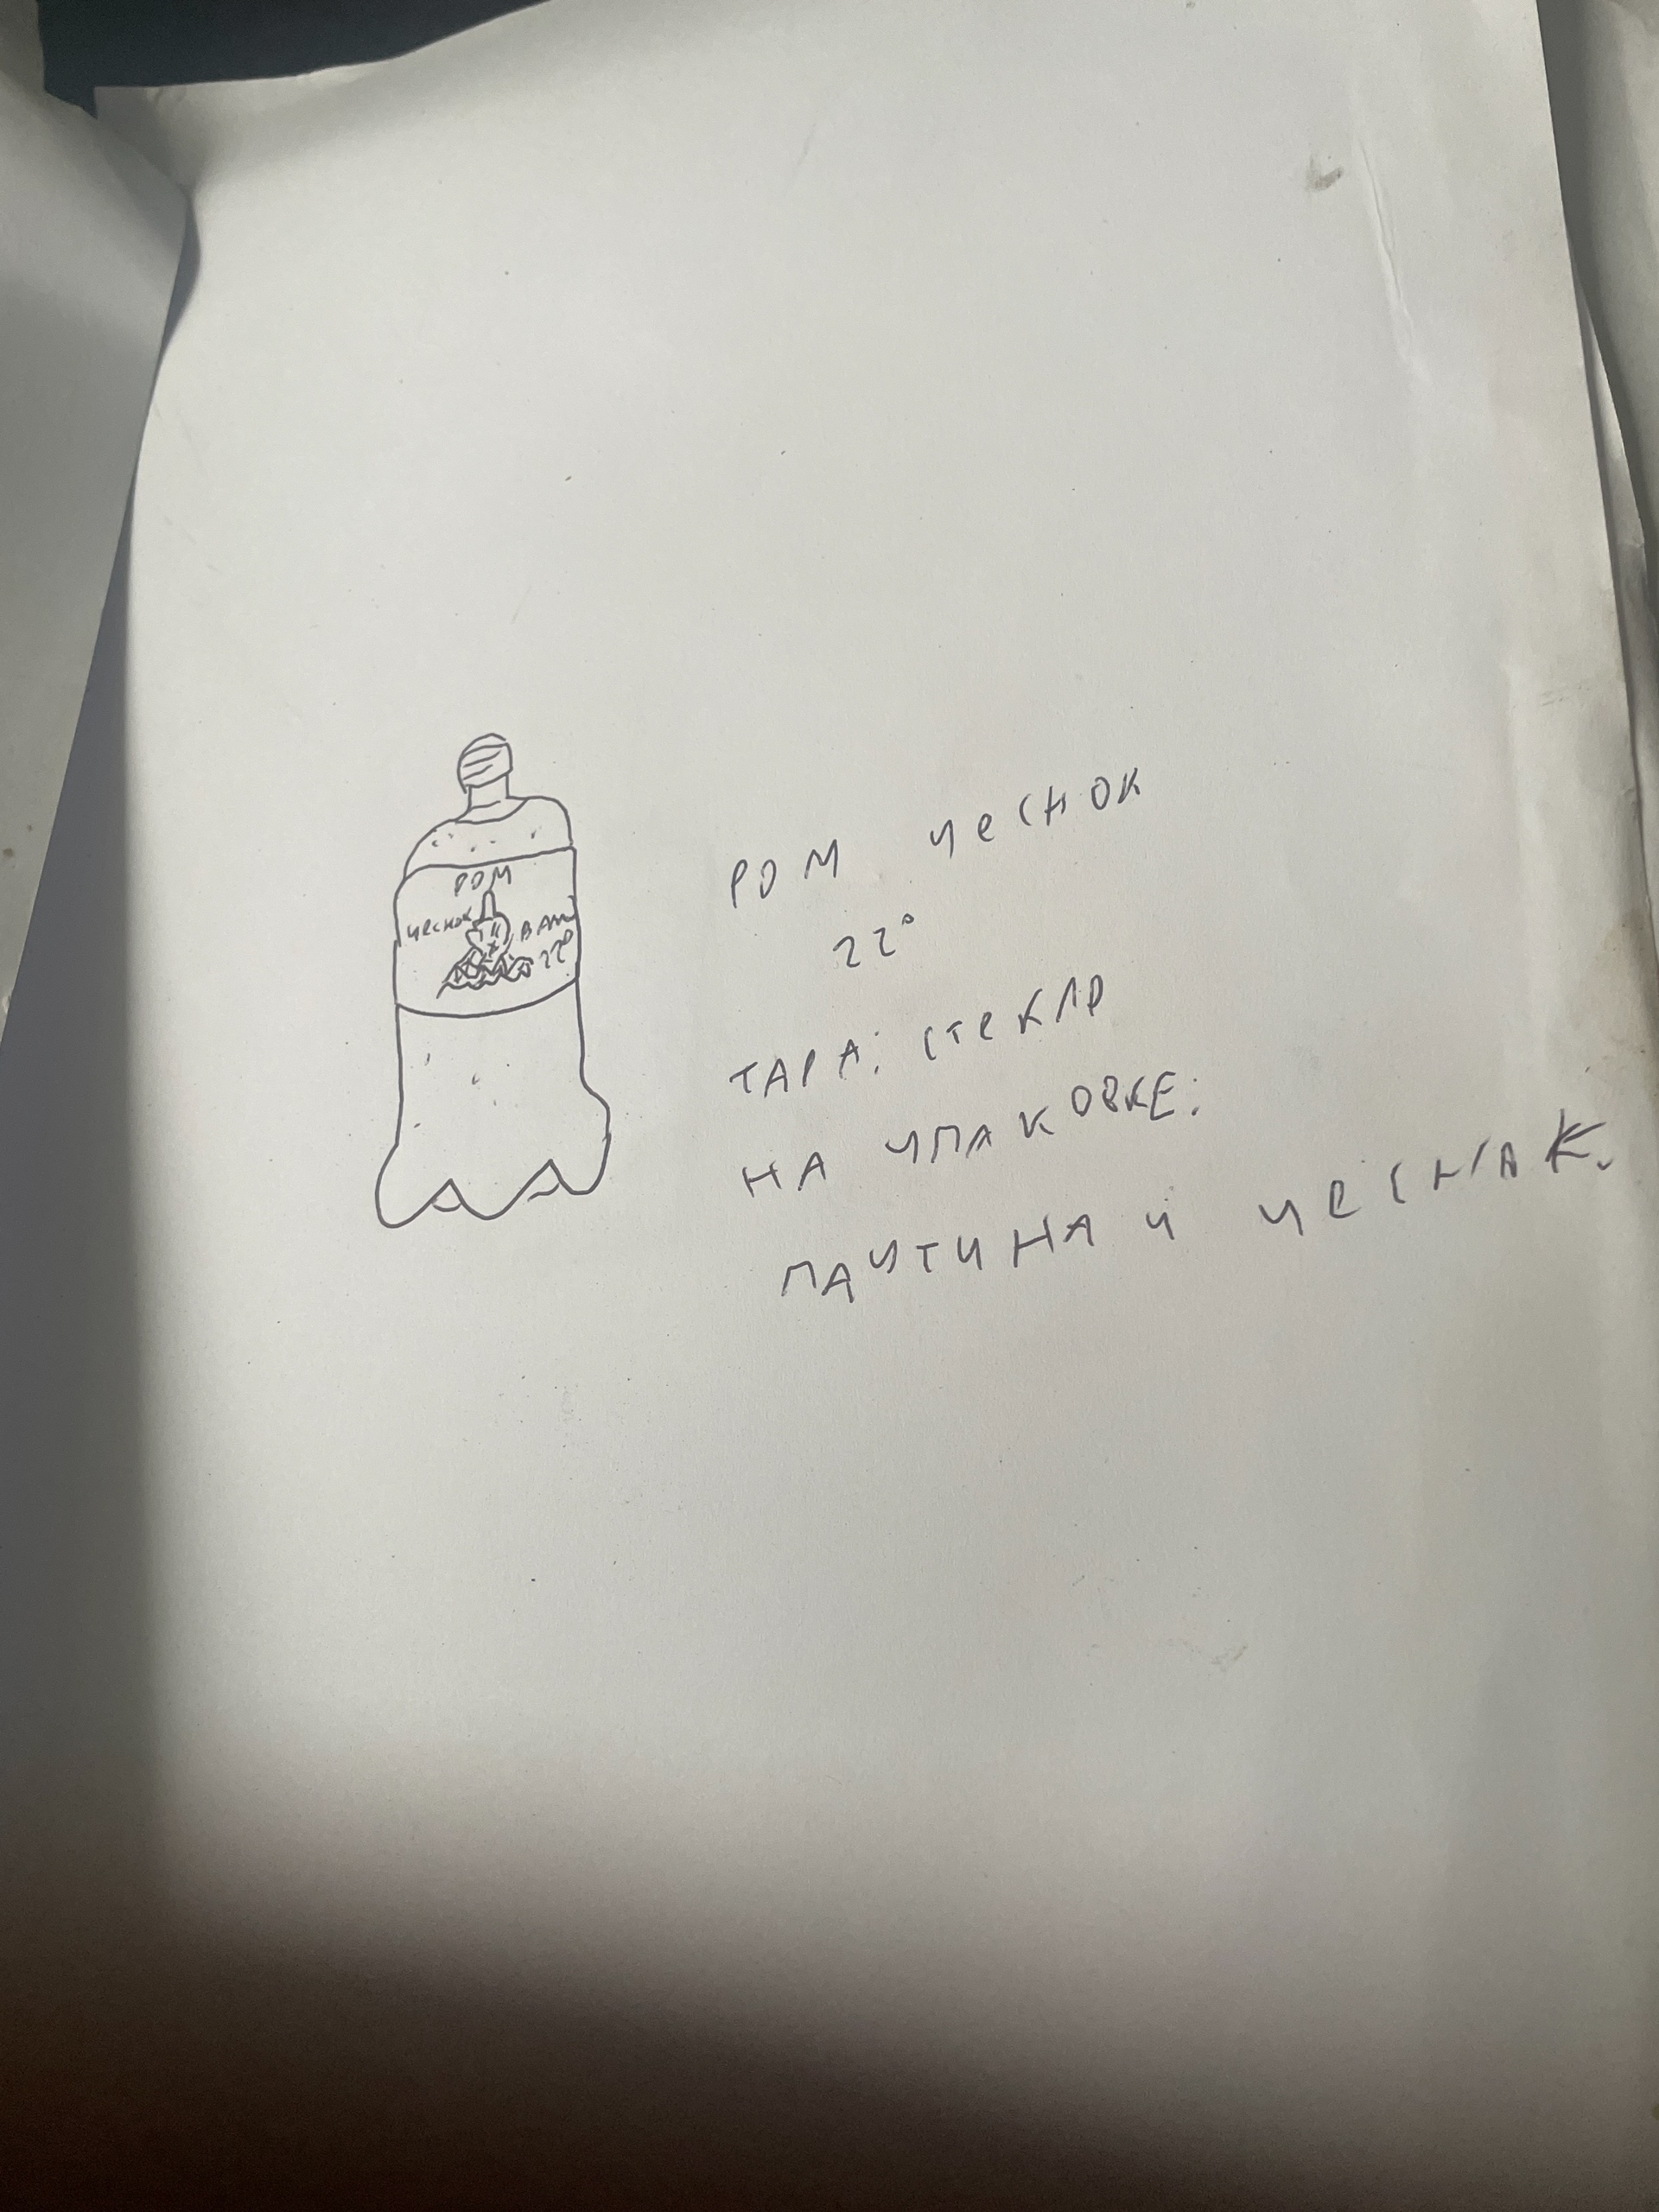 РОМ
чеснок
ВАМ
22°
РОМ чеснок
22°
ТАРА: стекло
НА УПАКОВКЕ:
ПАУТИНА и чеснАК.